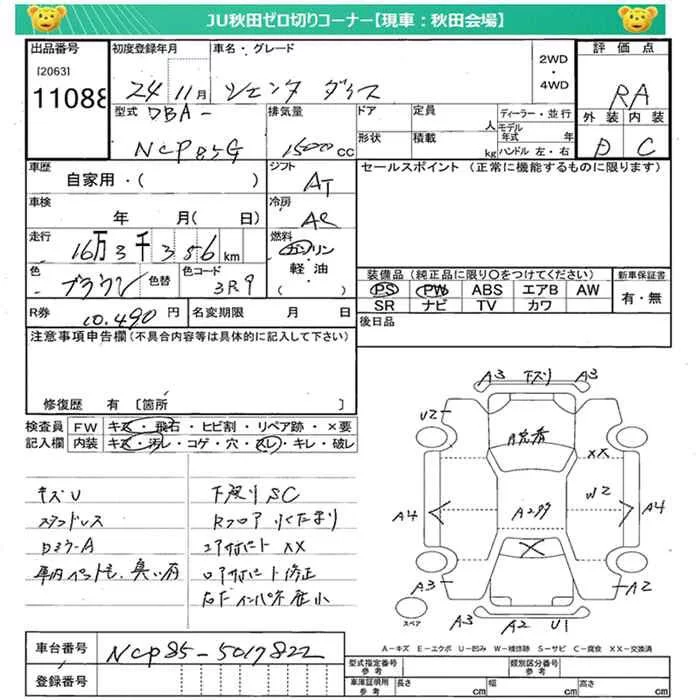 JU秋田ゼロ切りコーナー【現車：秋田会場】
出品番号 初度登録年月 車名・グレード 2WD・4WD 評価点
[2063]
11088 24 11月 シエンタ ダイス RA
型式 DBA- 排気量 ドア 定員 人 ディーラー・並行 外装 内装
NCP85G 1500cc 形状 積載 kg モデル年式 年 ハンドル 左・右 D C
車歴 シフト セールスポイント (正常に機能するものに限ります)
自家用・( ) AT
車検 冷房
年 月( 日) AC
走行 燃料
16万3千356km ガソリン
軽油
( )
色 ブラウン 色替 色コード 3R9
装備品(純正品に限り○をつけてください) 新車保証書
PS PW ABS エアB AW 有・無
SR ナビ TV カワ
R券 10,490円 名変期限 月 日 後日品
注意事項申告欄(不具合内容等は具体的に記入して下さい)
修復歴 有 [箇所 ]
検査員 FW キズ・飛石・ヒビ割・リペア跡・×要
記入欄 内装 キズ・汚レ・コゲ・穴・スレ・キレ・破レ
キズU 下廻りSC
ステアリンス Rフロア
XX
修正
A3 下スリ A3
U2
XX
W2
A4 A4
A3 A2
スペア A3 A2 U1
A－キズ E－エクボ U－凹み W－補修跡 S－サビ C－腐食 XX－交換済
車台番号 NCP85-5017822
登録番号
型式指定番号 参考 類別区分番号 参考
車庫証明用 参考 長さ cm 幅 cm 高さ cm